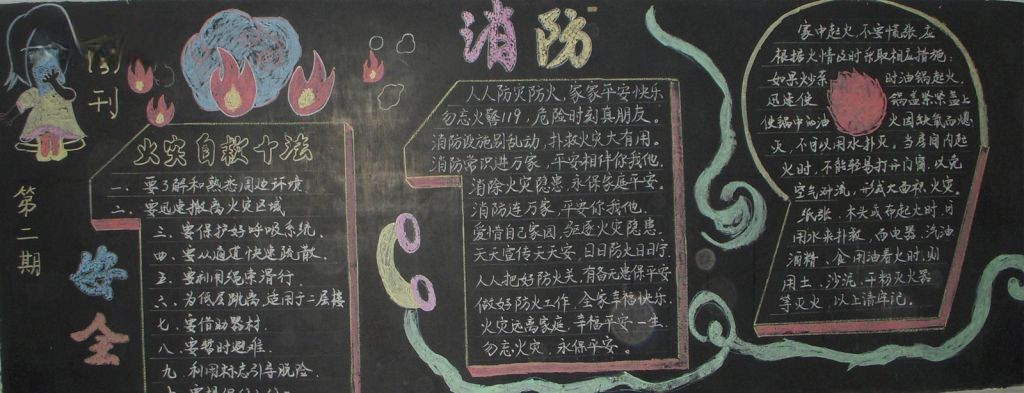 消防
安全
周刊
第二期
火灾自救十法
一、要了解和熟悉周边环境
二、要迅速撤离火灾区域
三、要保护好呼吸系统
四、要从通道快速疏散
五、要利用绳索滑行
六、为低层跳离,适用于二层楼
七、要借助器材
八、要暂时避难
九、利用标志引导脱险
人人防灾防火,家家平安快乐
勿忘火警119,危险时刻真朋友。
消防设施别乱动,扑救火灾大有用。
消防常识进万家,平安相伴你我他.
消除火灾隐患,永保家庭平安。
消防连万家,平安你我他.
爱惜自己家园,驱逐火灾隐患.
天天宣传天天安,日日防火日日宁
人人把好防火关,有备无患保平安
做好防火工作,全家幸福快乐.
火灾远离家庭,幸福平安一生.
勿忘火灾,永保平安。
家中起火,不要慌张,应
根据火情及时采取相应措施:
如果炒菜时油锅起火,
迅速使锅盖紧紧盖上
使锅中油油火因缺氧而熄
灭,不可以用水扑灭。当房间内起
火时,不能轻易打开门窗,以免
空气对流,形成大面积火灾。
纸张、木头或布起火时,可
用水来扑救,而电器、汽油
酒精、食用油着火时,则
用土、沙泥、干粉灭火器
等灭火,以上请牢记。